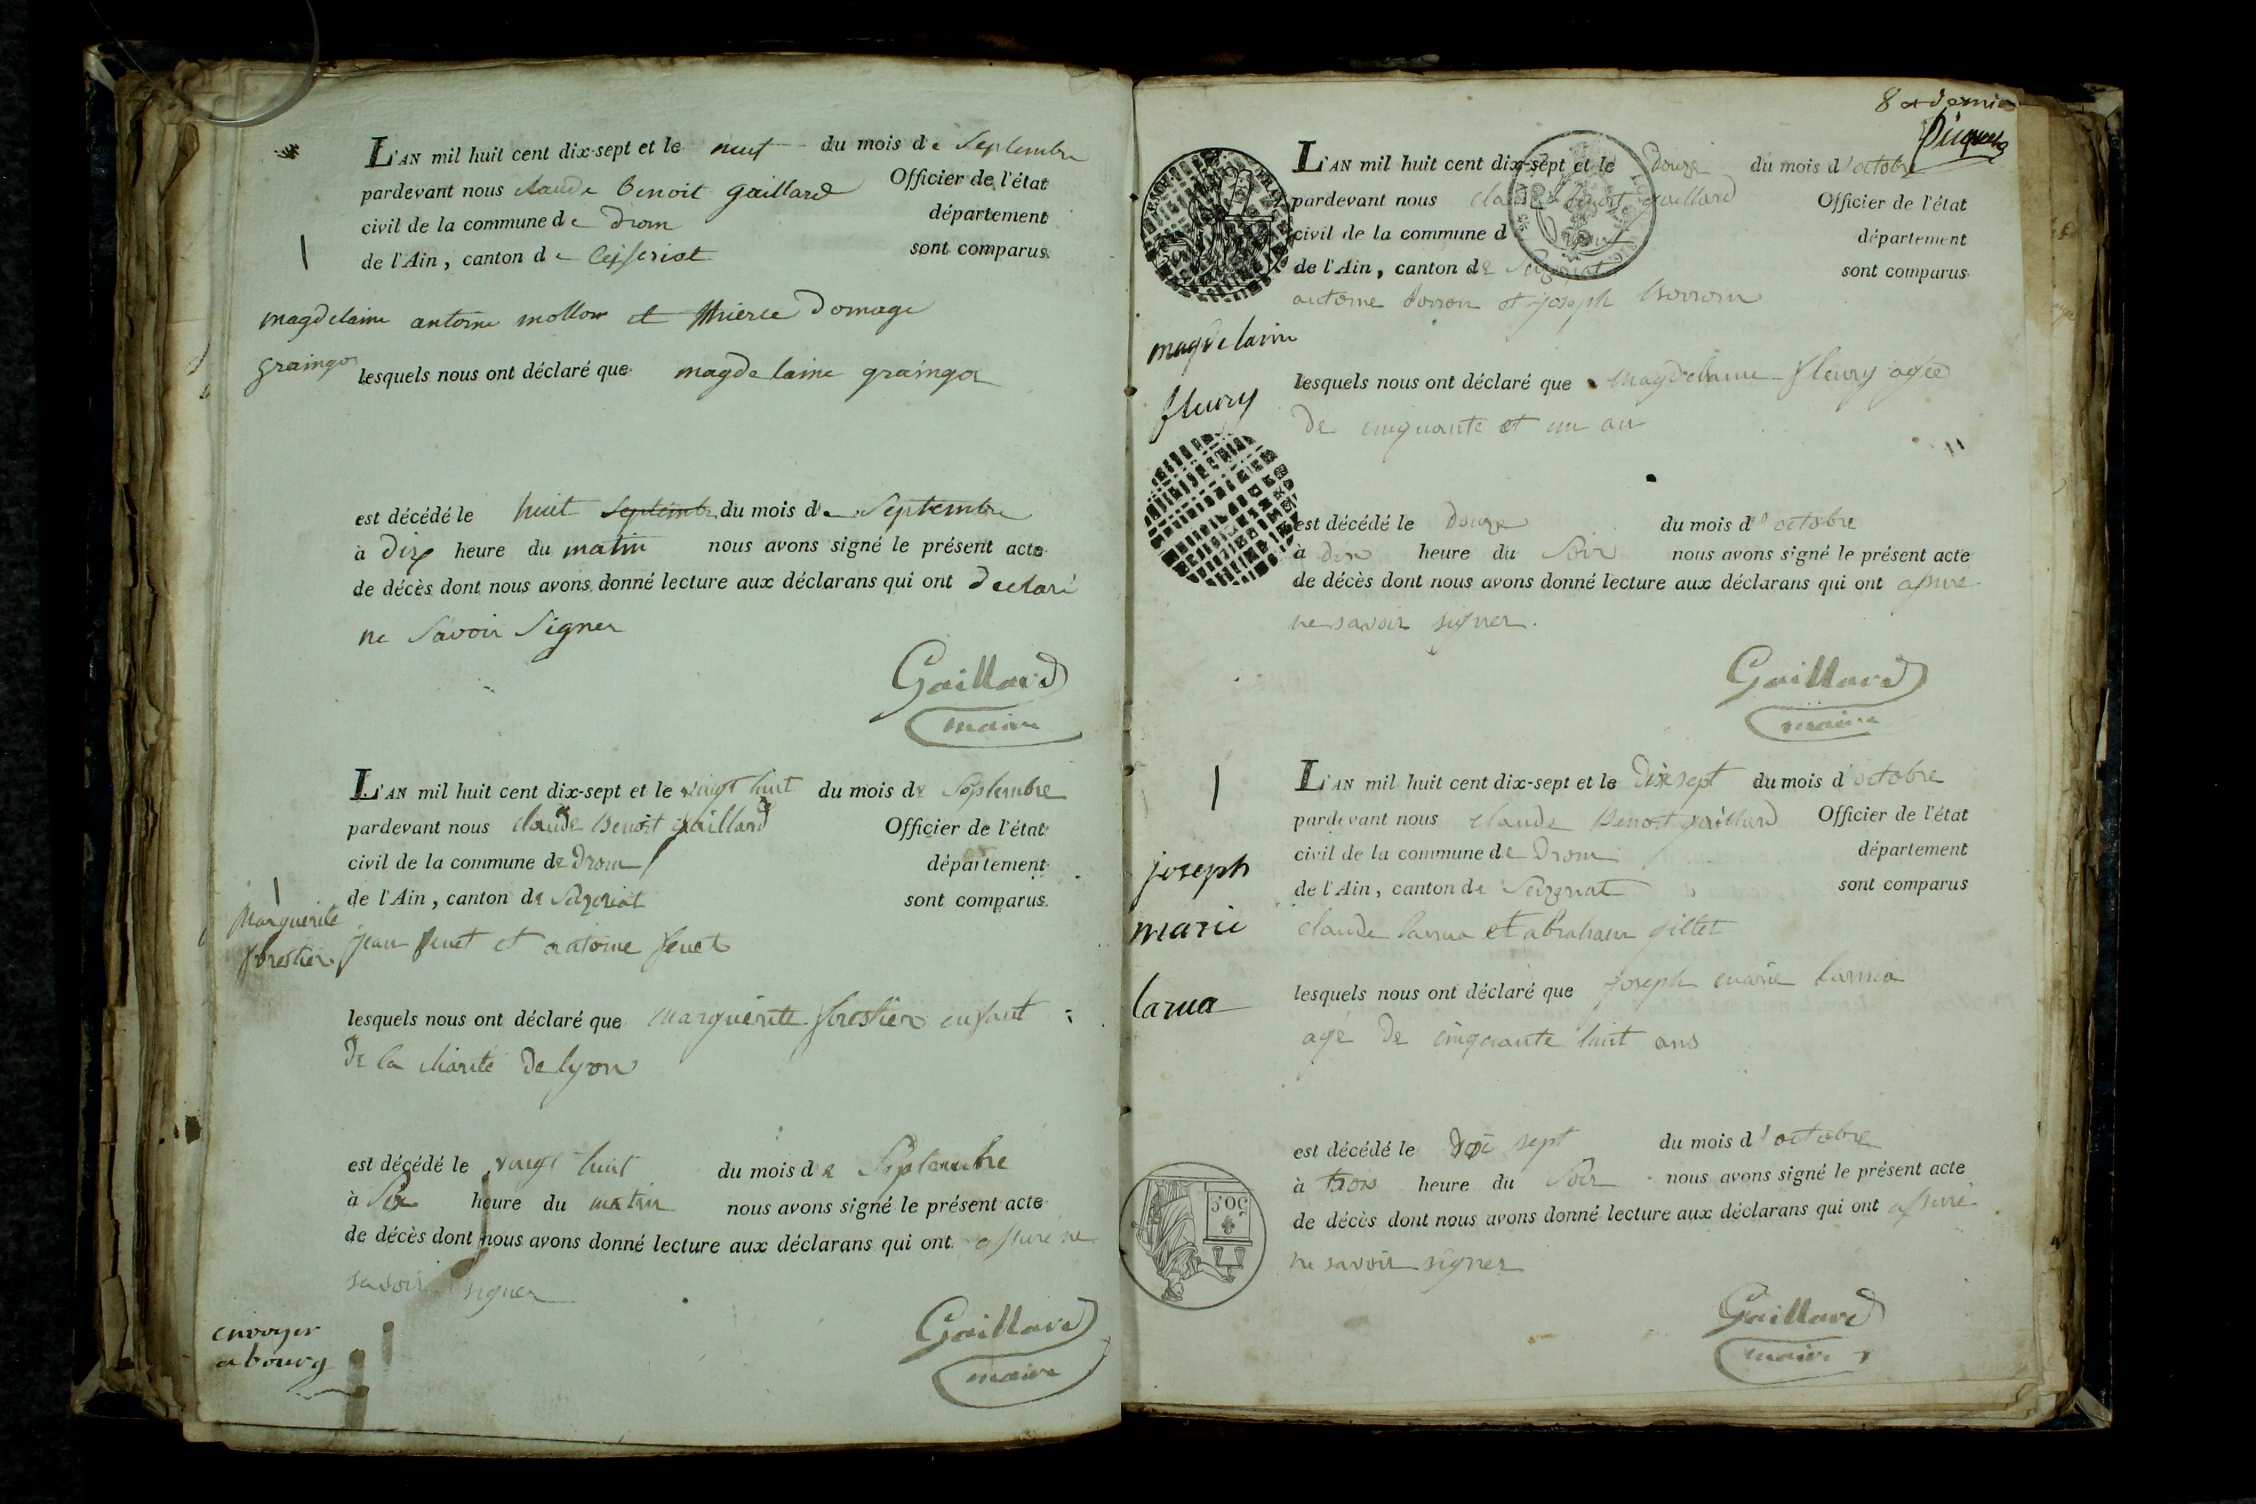 L'AN mil huit cent dix-sept et le neuf du mois de Septembre
pardevant nous claude benoit gaillard Officier de l'état
civil de la commune de Drom département
de l'Ain, canton de Ceiseriat sont comparus
magdelaine
graingor
antoine mollor et thierce Domage
lesquels nous ont déclaré que magdelaine graingor
est décédé le huit septembr du mois de Septembre
à Dix heure du matin nous avons signé le présent acte
de décès dont nous avons donné lecture aux déclarans qui ont declaré
ne Savoir Signer
Gaillard
maire
L'AN mil huit cent dix-sept et le vingt huit du mois de Septembre
pardevant nous claude Benoit gaillard Officier de l'état
civil de la commune de Drom département
de l'Ain, canton de Seizeriat sont comparus
Marguerite
forestier
jean fenet et antoine fenet
lesquels nous ont déclaré que marguerite forestier enfant
de la charité de lyon
est décédé le vingt huit du mois de Septembre
à Six heure du matin nous avons signé le présent acte
de décès dont nous avons donné lecture aux déclarans qui ont assuré ne
savoir signer
envoyer
a bourg
Gaillard
maire
8 et dernier
L'AN mil huit cent dix-sept et le douze du mois d'octobre
pardevant nous claude benoit gaillard Officier de l'état
civil de la commune d département
de l'Ain, canton de sont comparus
antoine et joseph
magdelaine
fleury
lesquels nous ont déclaré que magdelaine fleury agée
de cinquante et un an
est décédé le douze du mois d'octobre
à dix heure du Soir nous avons signé le présent acte
de décès dont nous avons donné lecture aux déclarans qui ont assuré
ne savoir signer.
Gaillard
maire
L'AN mil huit cent dix-sept et le Dix sept du mois d'octobre
pardevant nous claude Benoit gaillard Officier de l'état
civil de la commune de Drom département
de l'Ain, canton de Seizeriat sont comparus
joseph
marie
larua
claude larua et abraham gillet
lesquels nous ont déclaré que joseph marie larua
agé de cinquante huit ans
est décédé le Dix sept du mois d'octobre
à trois heure du Soir nous avons signé le présent acte
de décès dont nous avons donné lecture aux déclarans qui ont assuré
ne savoir signer
50 C
Gaillard
maire